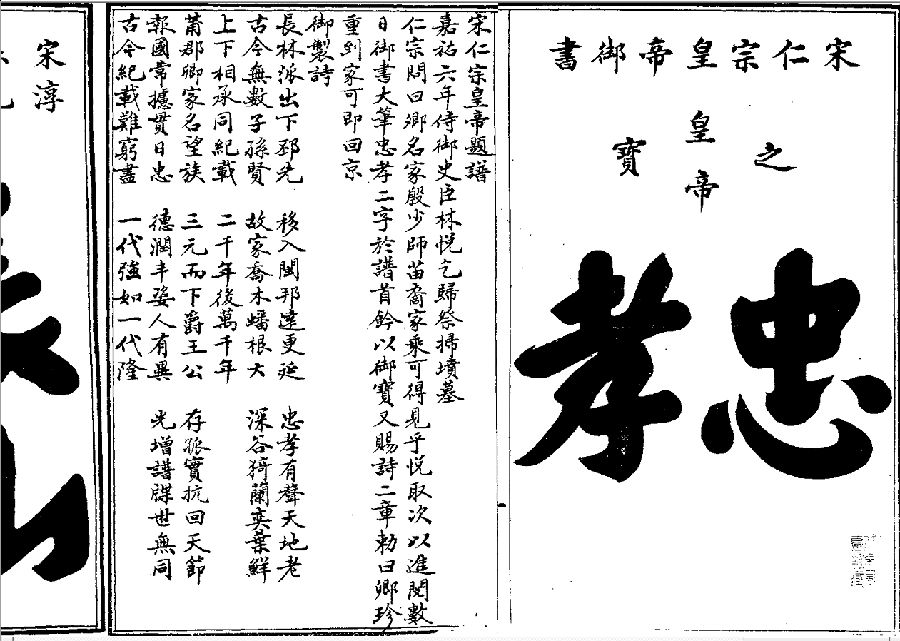 宋仁宗皇帝御書
皇帝
之
寶
忠
孝
宋仁宗皇帝題譜
嘉祐六年侍御史臣林悅乞歸祭掃墳墓
仁宗問曰卿名家殷少師苗裔家乘可得見乎悅取次以進閱數
日御書大筆忠孝二字於譜首鈐以御寶又賜詩二章勅曰卿珍
重到家可即回京
御製詩
長林派出下邳先 移入閩邦遠更延 忠孝有聲天地老
古今無數子孫賢 故家喬木蟠根大 深谷猗蘭奕葉鮮
上下相承同紀載 二千年後萬千年
莆郡卿家名望族 三元而下爵王公 存孤實抗回天節
報國常攄貫日忠 德潤丰姿人有異 光增譜牒世無同
古今紀載難窮盡 一代強如一代隆
宋淳